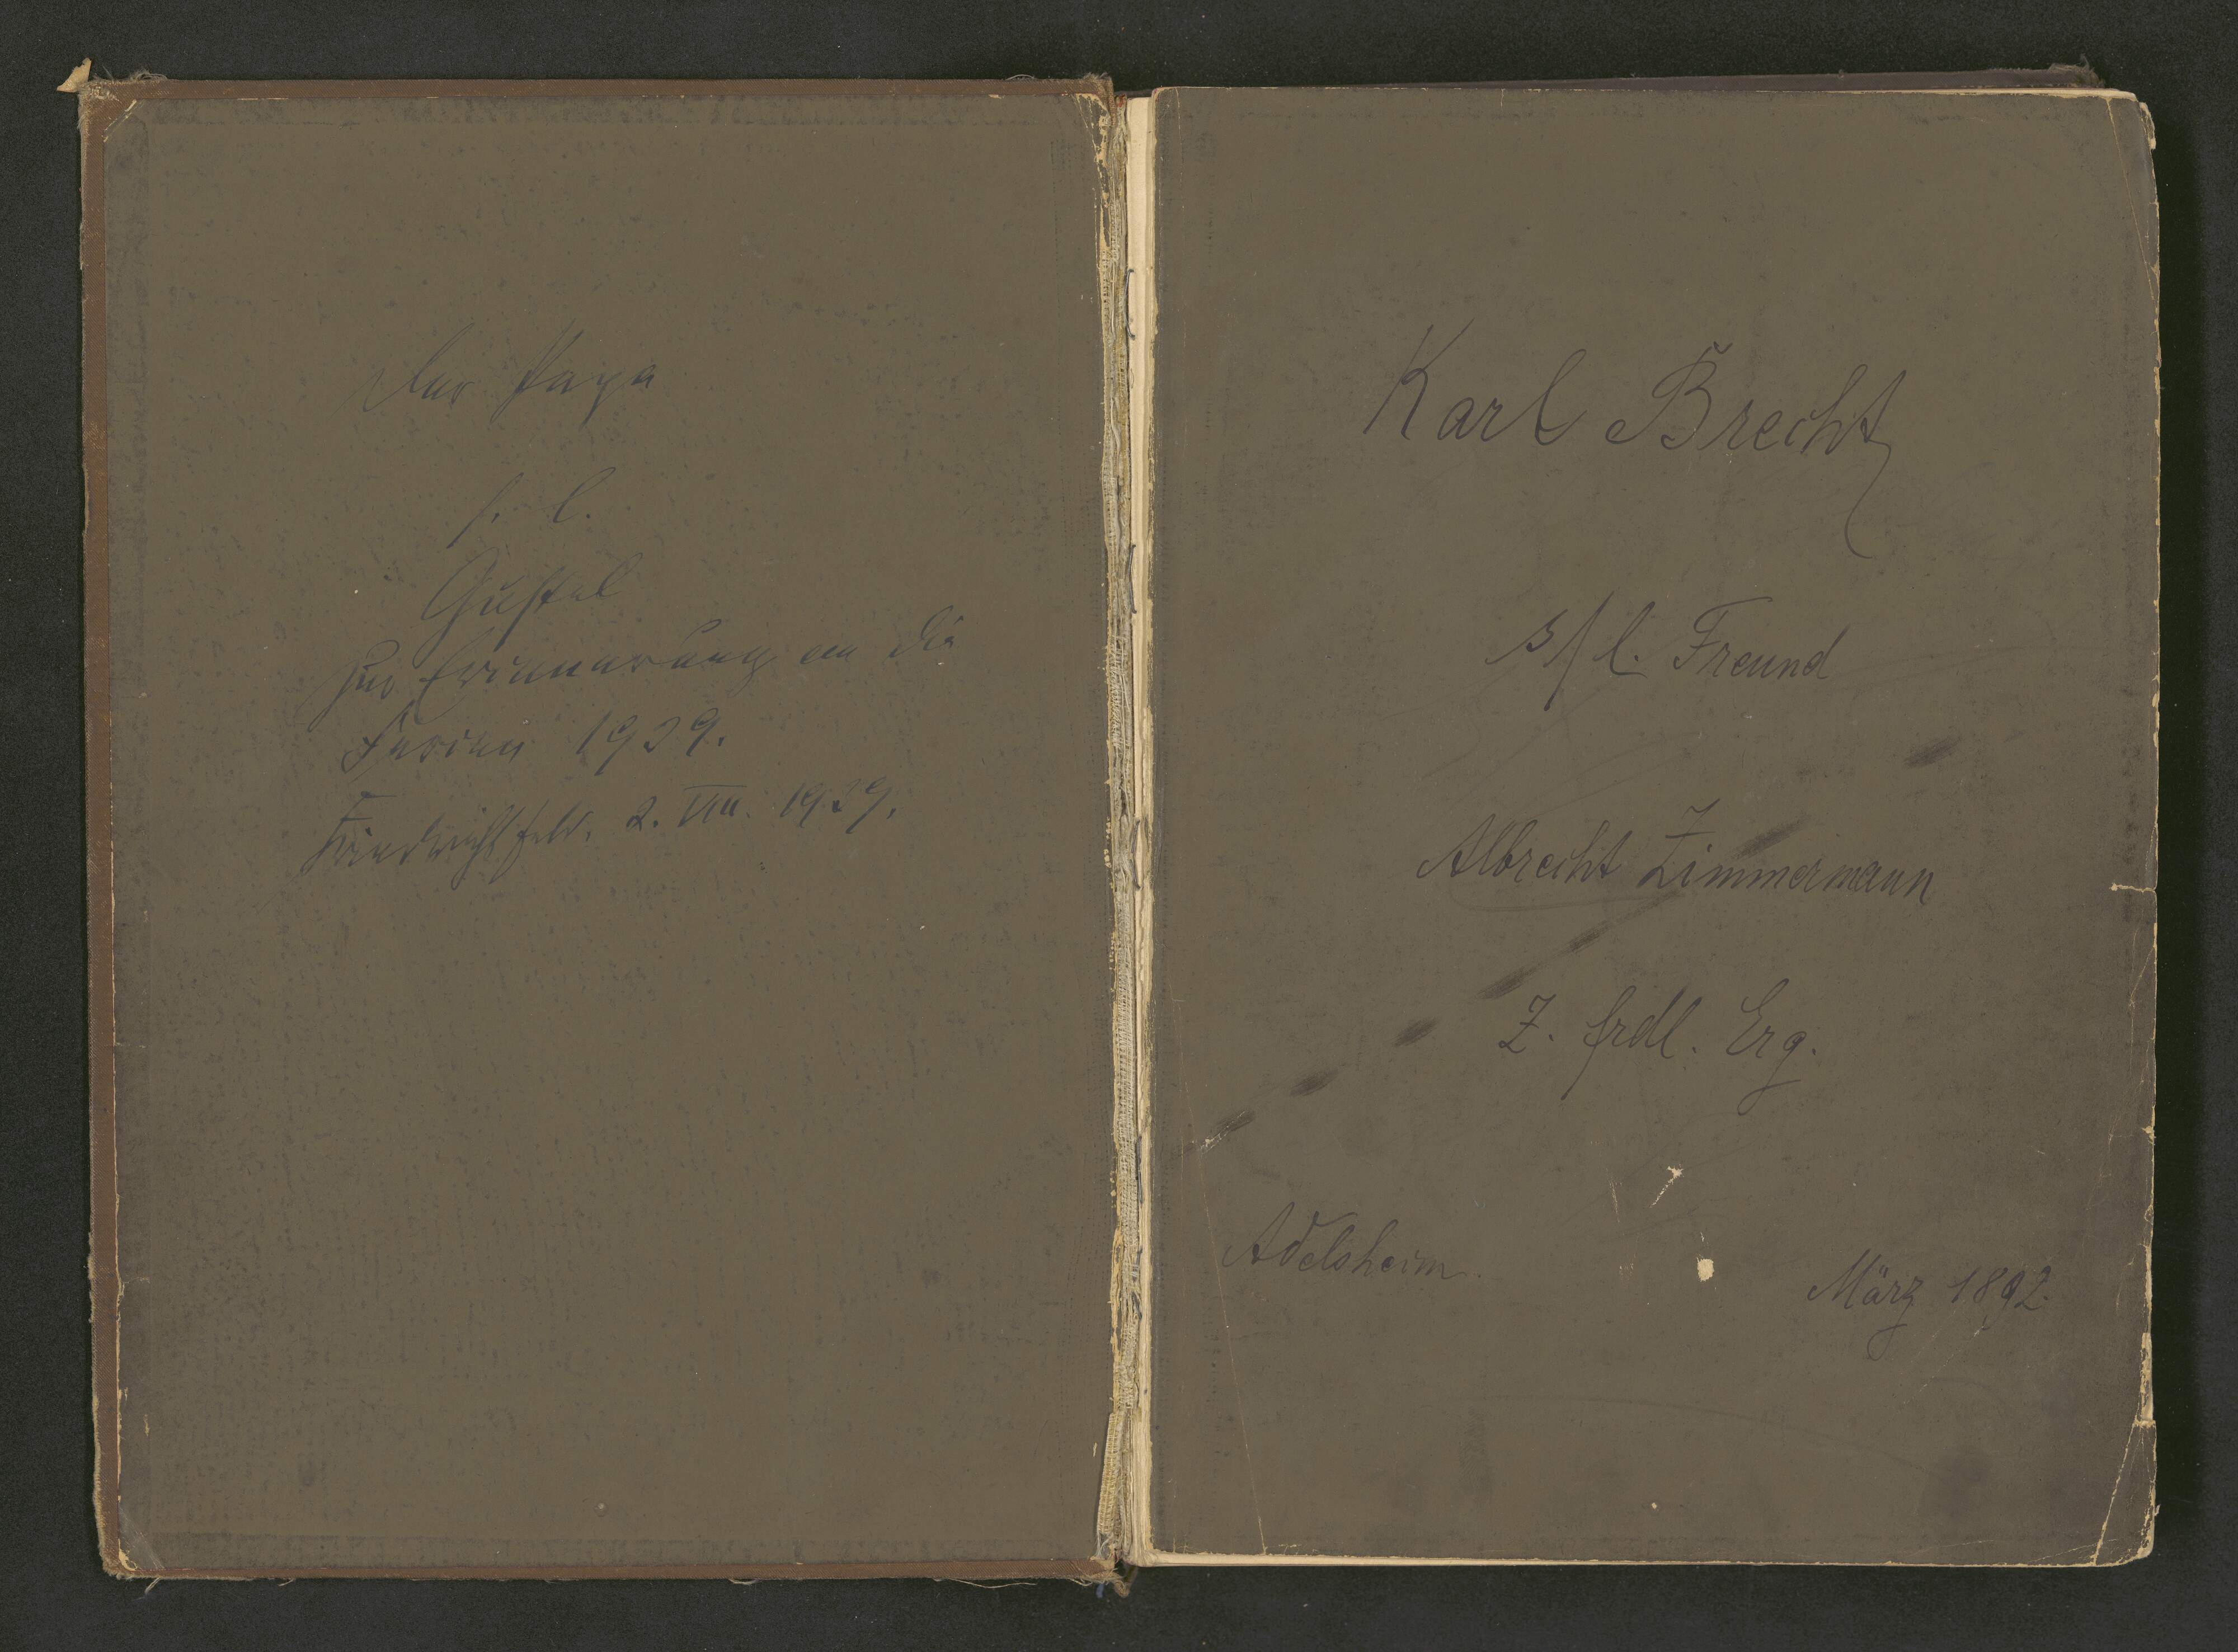 Der Papa
s. l.
Gustel
zur Erinnerung an die
Ferien 1939.
Friedrichsfeld, 2. VIII. 1939.
Karl Brecht
s/l. Freund
Albrecht Zimmermann
Z. frdl. Erg.
Adelsheim.
März 1892.